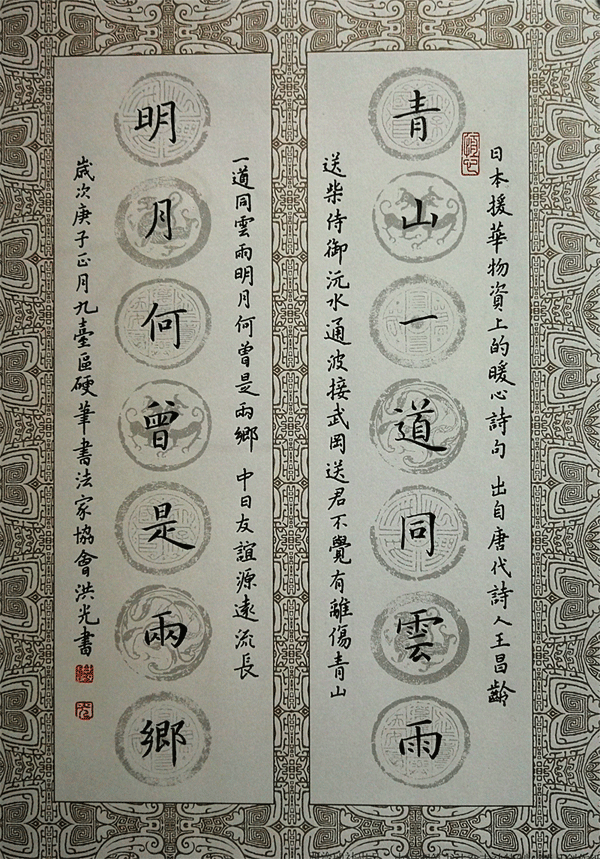 日本援華物資上的暖心詩句 出自唐代詩人王昌齡
青山一道同雲雨
送柴侍御沅水通波接武岡送君不覺有離傷青山
一道同雲雨明月何曾是兩鄉 中日友誼源遠流長
明月何曾是兩鄉
歲次庚子正月九臺區硬筆書法家協會洪光書